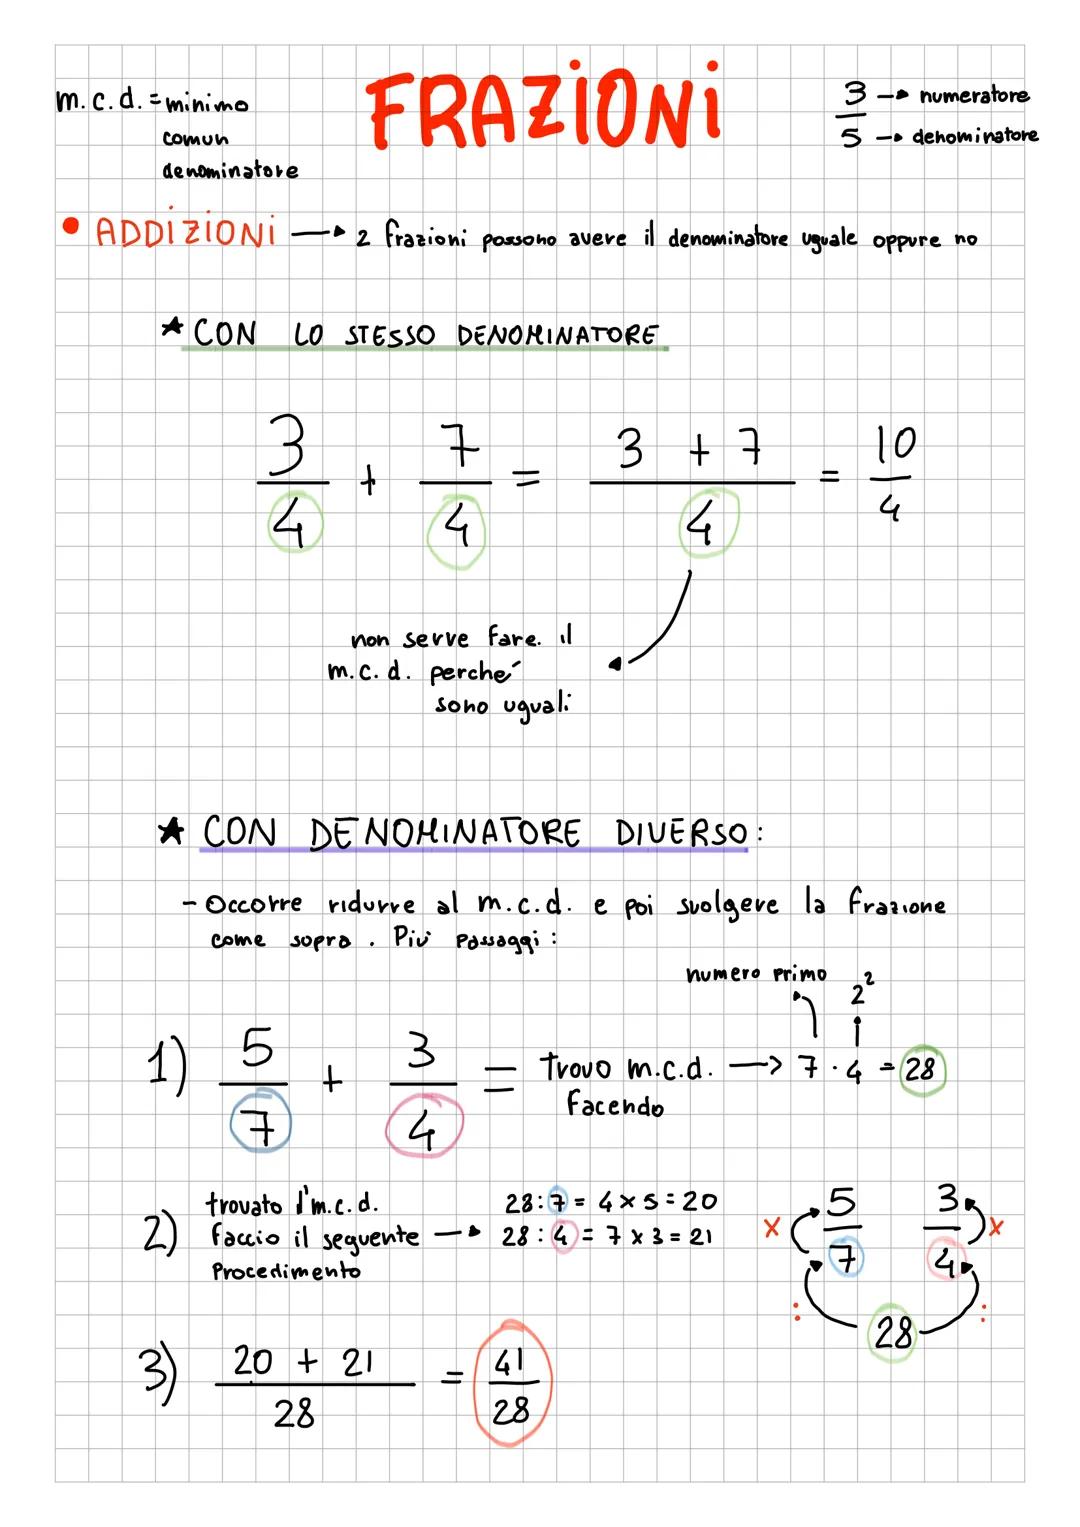 m.c.d. = minimo
comun
denominatore
FRAZIONI
3 → numeratore
5 → denominatore
• ADDIZIONI → 2 frazioni possono avere il denominatore uguale oppure no
★ CON LO STESSO DENOMINATORE
3/4 + 7/4 = (3 + 7)/4 = 10/4
non serve fare. il
m.c.d. perché
sono uguali
★ CON DENOMINATORE DIVERSO:
- Occorre ridurre al m.c.d. e poi svolgere la frazione
come sopra. Più passaggi:
numero primo 2²
1) 5/7 + 3/4 = trovo m.c.d. → 7 · 4 = 28
facendo
2) trovato l'm.c.d.
faccio il seguente →
procedimento
28 : 7 = 4 x 5 = 20
28 : 4 = 7 x 3 = 21
x 5/7 3/4 x
: 28 :
3) (20 + 21)/28 = 41/28